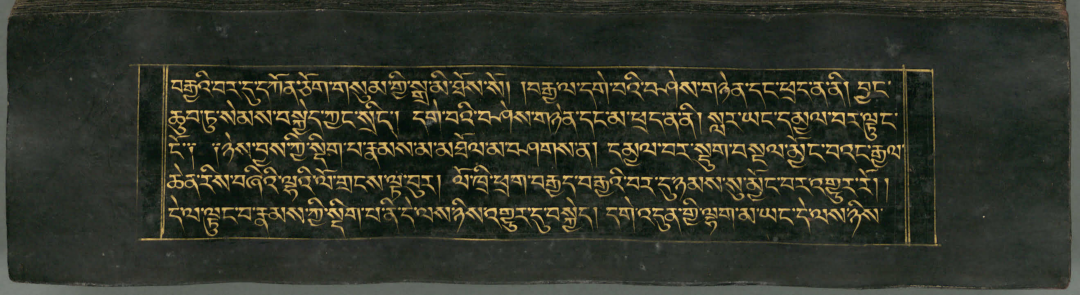 བརྒྱའི་བར་དུ་དཀོན་ཅོག་གསུམ་ཀྱི་སྒྲ་མི་ཐོས་སོ། །བརྒྱལ་དགེ་བའི་བཤེས་གཉེན་དང་ཕྲད་ན་ནི། བྱང་
ཆུབ་ཏུ་སེམས་བསྐྱེད་ཀྱང་སྲིད། དགེ་བའི་བཤེས་གཉེན་དང་མ་ཕྲད་ན་ནི། སླར་ཡང་དམྱལ་བར་ལྟུང་
ངོ་། ཉེས་བྱས་ཀྱི་སྡིག་པ་རྣམས་མ་མཐོལ་མ་བཤགས་ན། དམྱལ་བར་སྡུག་བསྔལ་མྱོང་བའང་རྒྱལ་
ཆེན་རིས་བཞིའི་ལྷའི་ལོ་གྲངས་ལྟ་བུར། ལོ་ཁྲི་ཕྲག་བརྒྱད་བརྒྱའི་བར་དུ་ཉམས་སུ་མྱོང་བར་འགྱུར་རོ། །
དེ་ལ་ལྟུང་བ་རྣམས་ཀྱི་སྡིག་པ་ནི་དེ་ལས་ཉིས་འགྱུར་དུ་བསྐྱེད། དགེ་འདུན་གྱི་ལྷག་མ་ཡང་དེ་ལས་ཉིས་